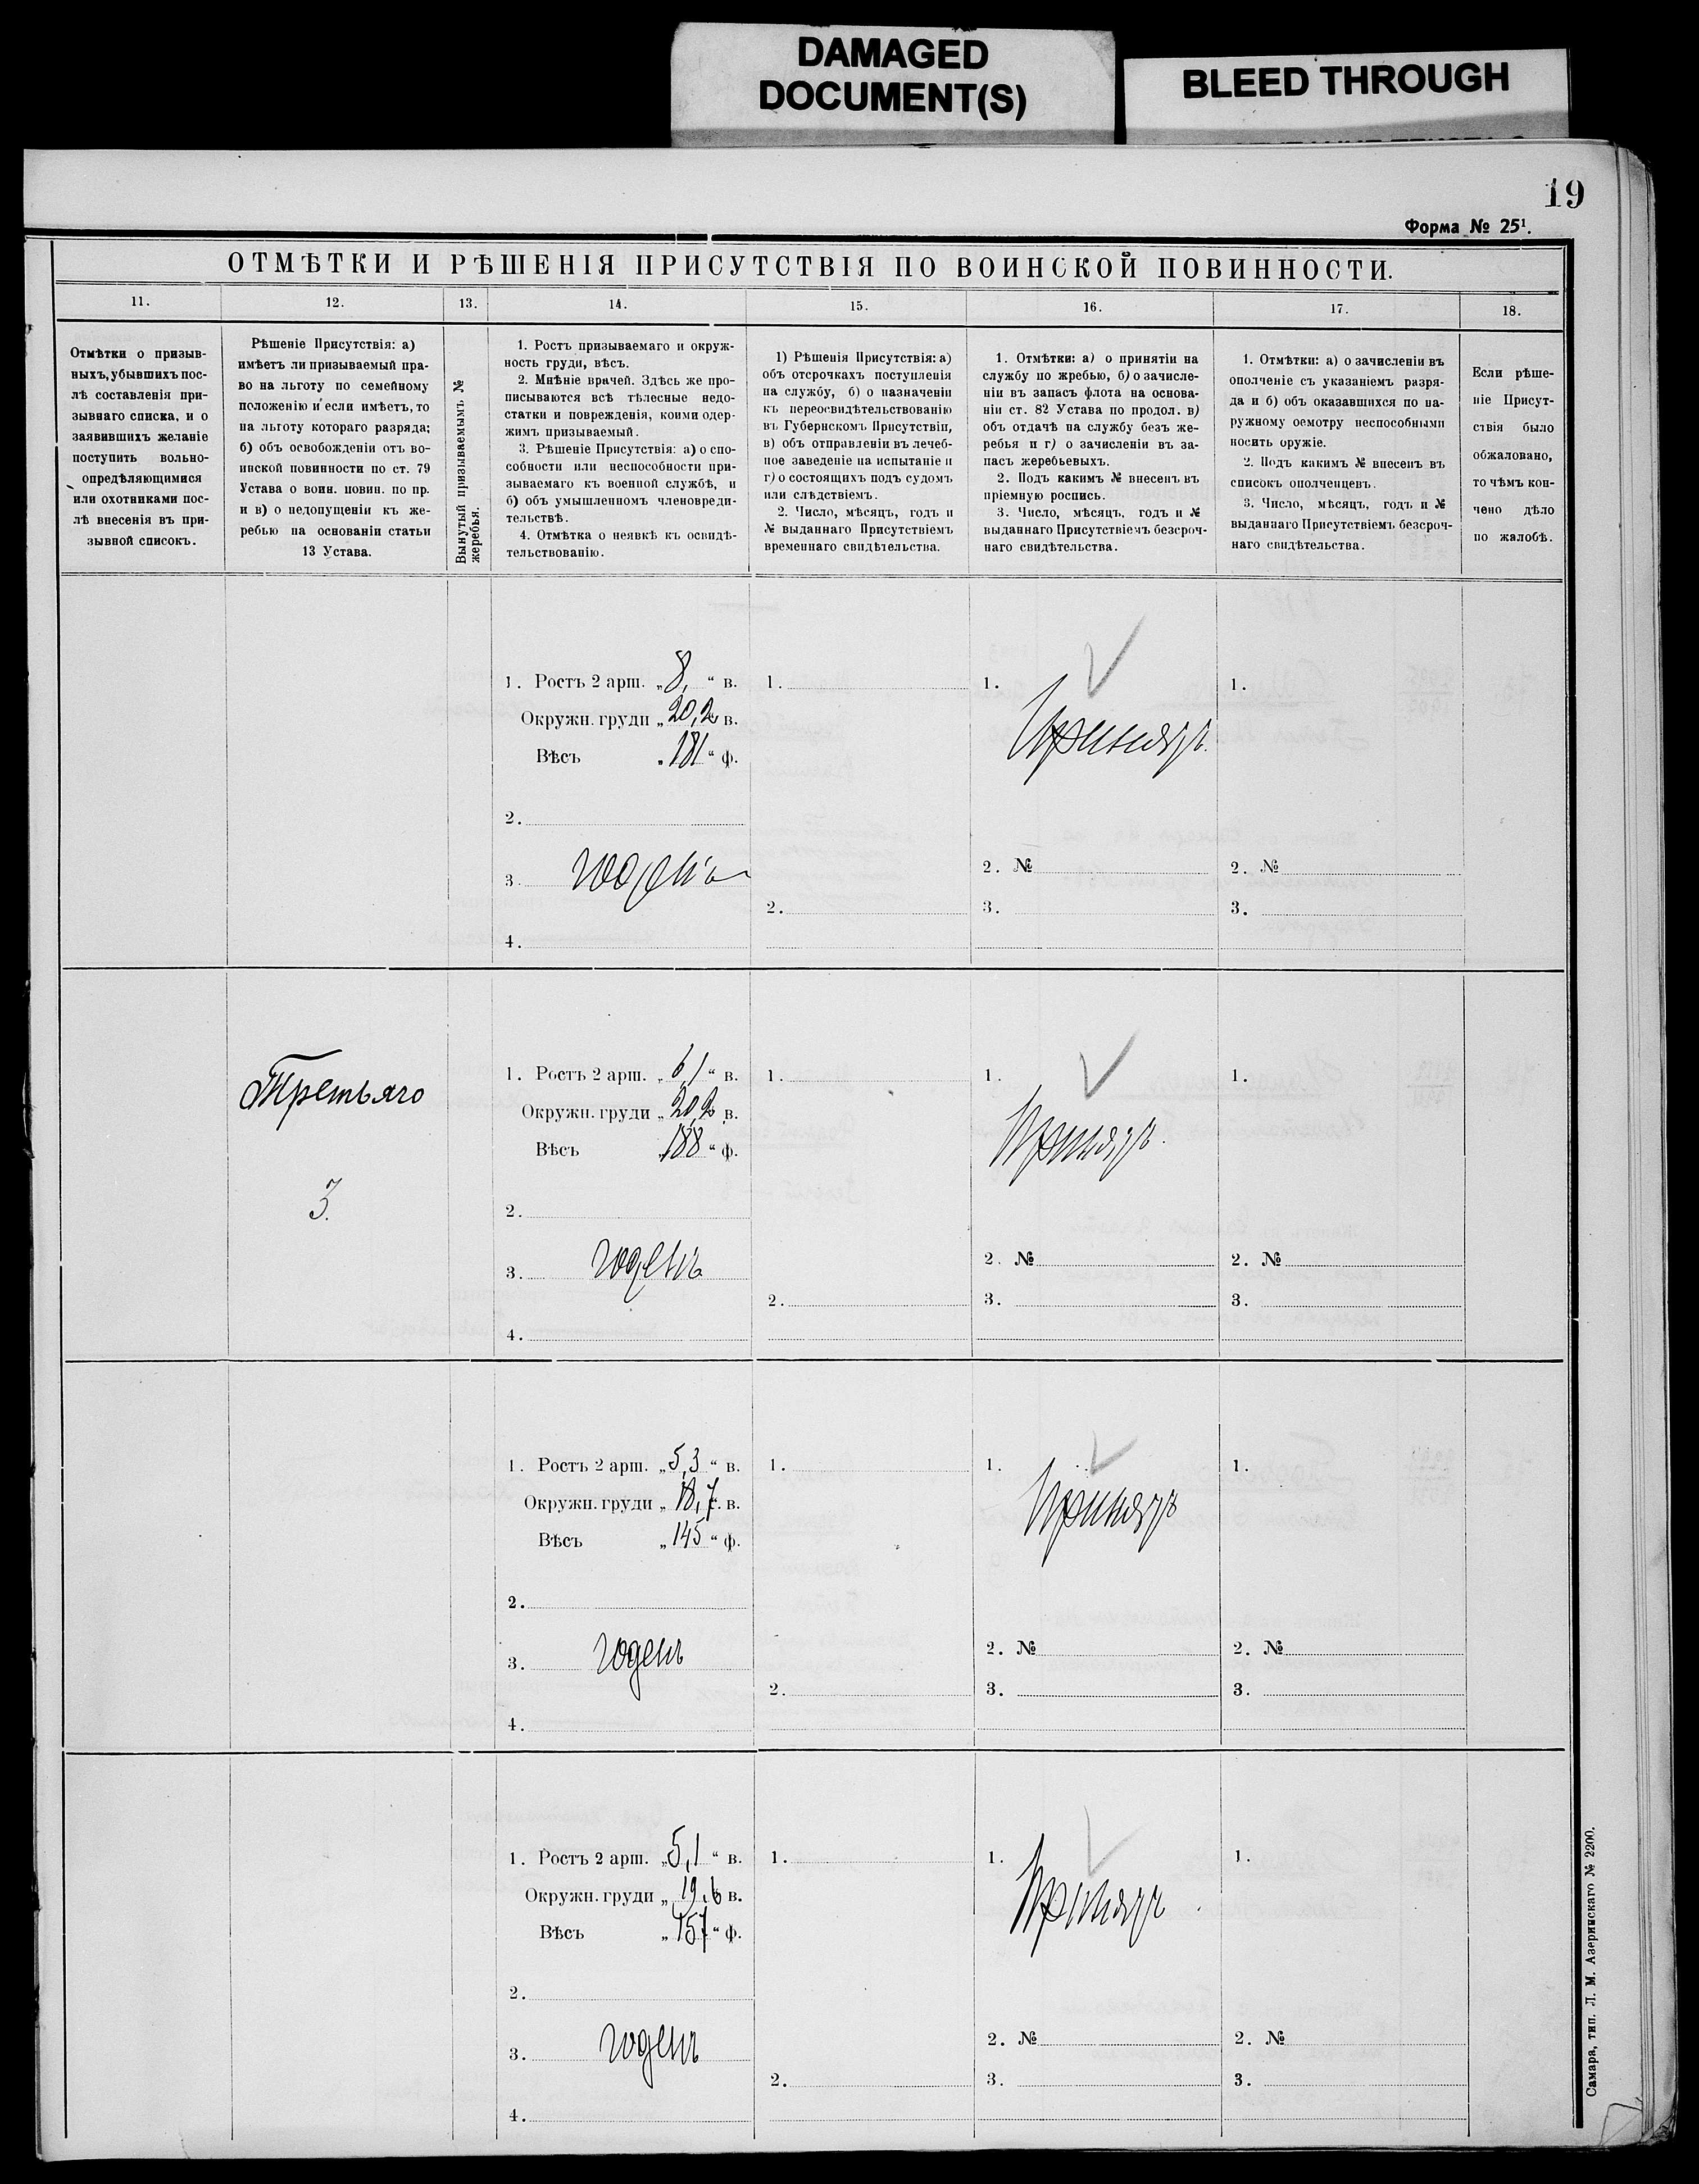 DAMAGED
DOCUMENT(S)
BLEED THROUGH
19
Форма № 25¹.
ОТМѢТКИ И РѢШЕНІЯ ПРИСУТСТВІЯ ПО ВОИНСКОЙ ПОВИННОСТИ.
11.
12.
13.
14.
15.
16.
17.
18.
Отмѣтки о призыв-
ныхъ, убывшихъ пос-
лѣ составленія при-
зывнаго списка, и о
заявившихъ желаніе
поступить вольно-
опредѣляющимися
или охотниками пос-
лѣ внесенія въ при-
зывной списокъ.
Рѣшеніе Присутствія: а)
имѣетъ ли призываемый пра-
во на льготу по семейному
положенію и если имѣетъ, то
на льготу котораго разряда;
б) объ освобожденіи отъ во-
инской повинности по ст. 79
Устава о воин. повин. по пр.
и в) о недопущеніи къ же-
ребью на основаніи статьи
13 Устава.
Вынутый призываемымъ №
жеребья.
1. Ростъ призываемаго и окруж-
ность груди, вѣсъ.
2. Мнѣніе врачей. Здѣсь же про-
писываются всѣ тѣлесные недо-
статки и поврежденія, коими одер-
жимъ призываемый.
3. Рѣшеніе Присутствія: а) о спо-
собности или неспособности при-
зываемаго къ военной службѣ, и
б) объ умышленномъ членовреди-
тельствѣ.
4. Отмѣтка о неявкѣ къ освидѣ-
тельствованію.
1) Рѣшенія Присутствія: а)
объ отсрочкахъ поступленія
на службу, б) о назначеніи
къ переосвидѣтельствованію
въ Губернскомъ Присутствіи,
в) объ отправленіи въ лечеб-
ное заведеніе на испытаніе и
г) о состоящихъ подъ судомъ
или слѣдствіемъ.
2. Число, мѣсяцъ, годъ и
№ выданнаго Присутствіемъ
временнаго свидѣтельства.
1. Отмѣтки: а) о принятіи на
службу по жребью, б) о зачисле-
ніи въ запасъ флота на основа-
ніи ст. 82 Устава по продол. в)
объ отдачѣ на службу безъ же-
ребья и г) о зачисленіи въ за-
пасъ жеребьевыхъ.
2. Подъ какимъ № внесенъ въ
пріемную роспись.
3. Число, мѣсяцъ, годъ и №
выданнаго Присутствіемъ безсроч-
наго свидѣтельства.
1. Отмѣтки: а) о зачисленіи въ
ополченіе съ указаніемъ разря-
да и б) объ оказавшихся по на-
ружному осмотру неспособными
носить оружіе.
2. Подъ какимъ № внесенъ въ
списокъ ополченцевъ.
3. Число, мѣсяцъ, годъ и №
выданнаго Присутствіемъ безсроч-
наго свидѣтельства.
Если рѣше-
ніе Присут-
ствія было
обжаловано,
то чѣмъ кон-
чено дѣло
по жалобѣ.
1. Ростъ 2 арш. „ 8, “ в.
Окружн. груди „ 20,2 в.
Вѣсъ „ 181 “ ф.
2.
3. годенъ
4.
1.
2.
1. Принятъ.
2. №
3.
1.
2. №
3.
Третьяго
3.
1. Ростъ 2 арш. „ 6,1 “ в.
Окружн. груди „ 20,2 в.
Вѣсъ „ 188 “ ф.
2.
3. годенъ
4.
1.
2.
1. Принятъ.
2. №
3.
1.
2. №
3.
1. Ростъ 2 арш. „ 5,3 “ в.
Окружн. груди „ 18,7 в.
Вѣсъ „ 145 “ ф.
2.
3. годенъ
4.
1.
2.
1. Принятъ
2. №
3.
1.
2. №
3.
1. Ростъ 2 арш. „ 5,1 “ в.
Окружн. груди „ 19,6 в.
Вѣсъ „ 157 “ ф.
2.
3. годенъ
4.
1.
2.
1. Принятъ
2. №
3.
1.
2. №
3.
Самара, тип. Л. М. Азеринскаго № 2200.